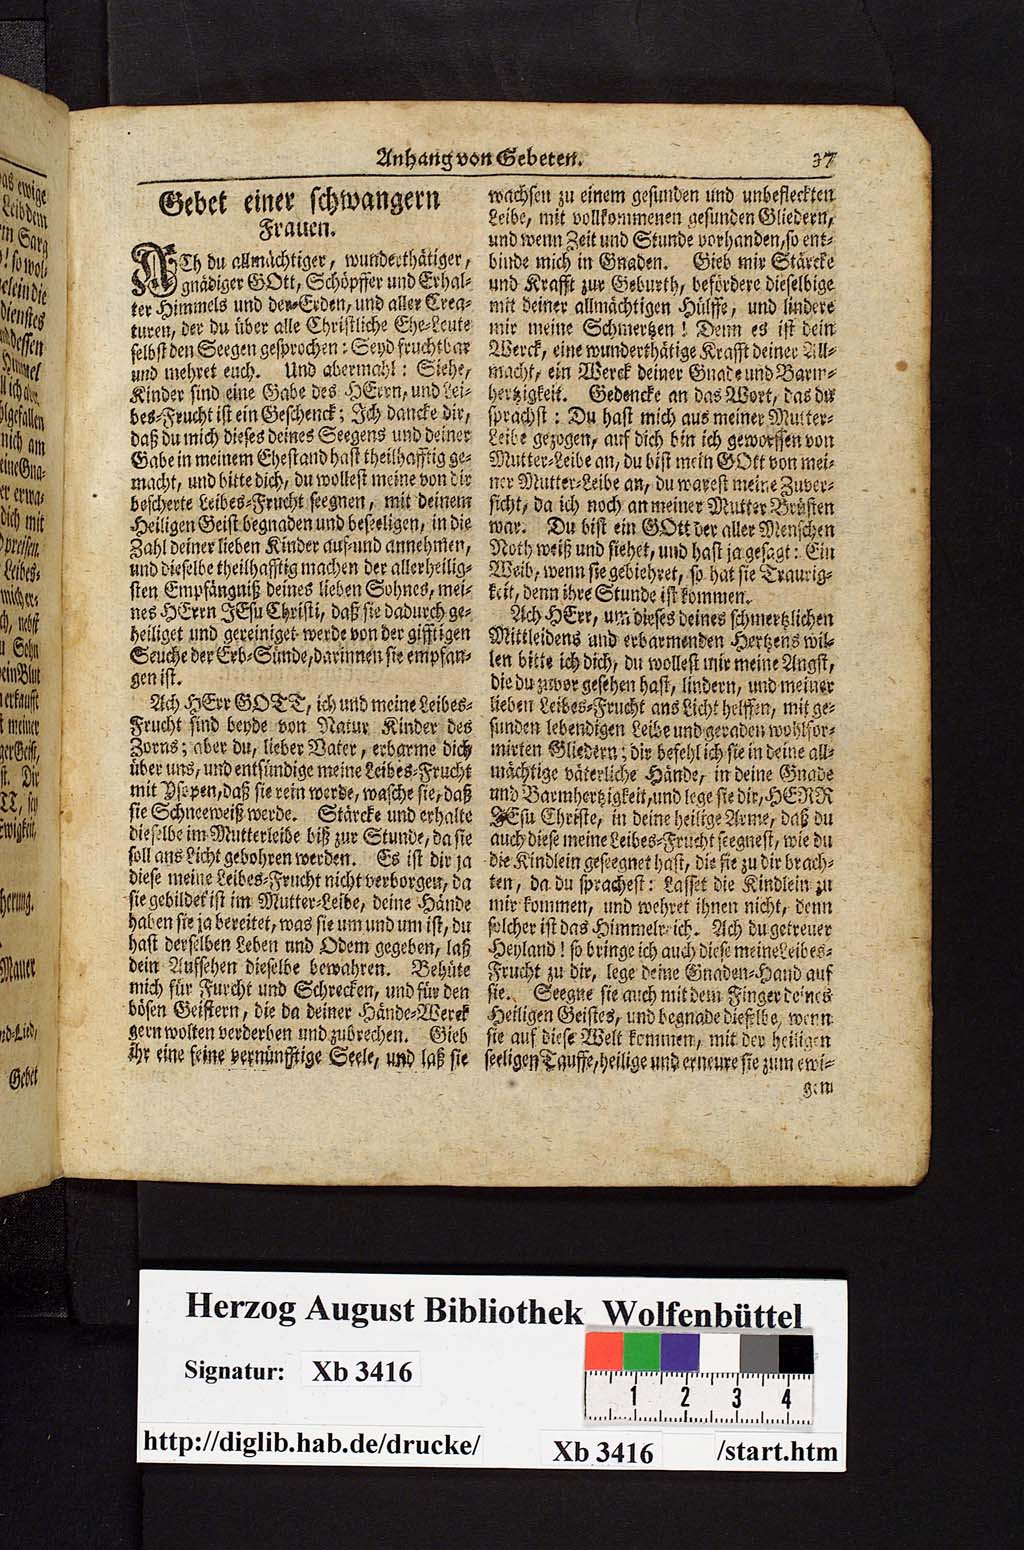 Anhang von Gebeten. 37
Gebet einer schwangern
Frauen.
ACh du allmächtiger, wunderthätiger,
gnädiger GOtt, Schöpffer und Erhal-
ter Himmels und der Erden, und aller Crea-
turen, der du über alle Christliche Ehe-Leute
selbst den Seegen gesprochen: Seyd fruchtbar
und mehret euch. Und abermahl: Siehe,
Kinder sind eine Gabe des HErrn, und Lei-
bes-Frucht ist ein Geschenck; Ich dancke dir,
daß du mich dieses deines Seegens und deiner
Gabe in meinem Ehestand hast theilhafftig ge-
macht, und bitte dich, du wollest meine von dir
bescherte Leibes-Frucht seegnen, mit deinem
Heiligen Geist begnaden und beseeligen, in die
Zahl deiner lieben Kinder auf-und annehmen,
und dieselbe theilhafftig machen der allerheilig-
sten Empfängniß deines lieben Sohnes, mei-
nes HErrn JEsu Christi, daß sie dadurch ge-
heiliget und gereiniget werde von der gifftigen
Seuche der Erb-Sünde, darinnen sie empfan-
gen ist.
Ach HErr GOTT, ich und meine Leibes-
Frucht sind beyde von Natur Kinder des
Zorns; aber du, lieber Vater, erbarme dich
über uns, und entsündige meine Leibes-Frucht
mit Ysopen, daß sie rein werde, wasche sie, daß
sie Schneeweiß werde. Stärcke und erhalte
dieselbe im Mutterleibe biß zur Stunde, da sie
soll ans Licht gebohren werden. Es ist dir ja
diese meine Leibes-Frucht nicht verborgen, da
sie gebildet ist im Mutter-Leibe, deine Hände
haben sie ja bereitet, was sie um und um ist, du
hast derselben Leben und Odem gegeben, laß
dein Aufsehen dieselbe bewahren. Behüte
mich für Furcht und Schrecken, und für den
bösen Geistern, die da deiner Hände-Werck
gern wolten verderben und zubrechen. Gieb
ihr eine feine vernünfftige Seele, und laß sie
wachsen zu einem gesunden und unbefleckten
Leibe, mit vollkommenen gesunden Gliedern,
und wenn Zeit und Stunde vorhanden, so ent-
binde mich in Gnaden. Gieb mir Stärcke
und Krafft zur Geburth, befördere dieselbige
mit deiner allmächtigen Hülffe, und lindere
mir meine Schmertzen! Denn es ist dein
Werck, eine wunderthätige Krafft deiner All-
macht, ein Werck deiner Gnade und Barm-
hertzigkeit. Gedencke an das Wort, das du
sprachst: Du hast mich aus meiner Mutter-
Leibe gezogen, auf dich bin ich geworffen von
Mutter-Leibe an, du bist mein GOtt von mei-
ner Mutter-Leibe an, du warest meine Zuver-
sicht, da ich noch an meiner Mutter Brüsten
war. Du bist ein GOtt der aller Menschen
Noth weiß und siehet, und hast ja gesagt: Ein
Weib, wenn sie gebiehret, so hat sie Traurig-
keit, denn ihre Stunde ist kommen.
Ach HErr, um dieses deines schmertzlichen
Mittleidens und erbarmenden Hertzens wil-
len bitte ich dich, du wollest mir meine Angst,
die du zuvor gesehen hast, lindern, und meiner
lieben Leibes-Frucht ans Licht helffen, mit ge-
sunden lebendigen Leibe und geraden wohlfor-
mirten Gliedern; dir befehl ich sie in deine all-
mächtige väterliche Hände, in deine Gnade
und Barmhertzigkeit, und lege sie dir, HERR
JEsu Christe, in deine heilige Arme, daß du
auch diese meine Leibes-Frucht seegnest, wie du
die Kindlein geseegnet hast, die sie zu dir brach-
ten, da du sprachest: Lasset die Kindlein zu
mir kommen, und wehret ihnen nicht, denn
solcher ist das Himmelreich. Ach du getreuer
Heyland! so bringe ich auch diese meine Leibes-
Frucht zu dir, lege deine Gnaden-Hand auf
sie. Seegne sie auch mit dem Finger deines
Heiligen Geistes, und begnade dieselbe, wenn
sie auf diese Welt kommen, mit der heiligen
seeligen Tauffe, heilige und erneure sie zum ewi-
gem
Herzog August Bibliothek Wolfenbüttel
Signatur: Xb 3416
1 2 3 4
http://diglib.hab.de/drucke/ Xb 3416 /start.htm